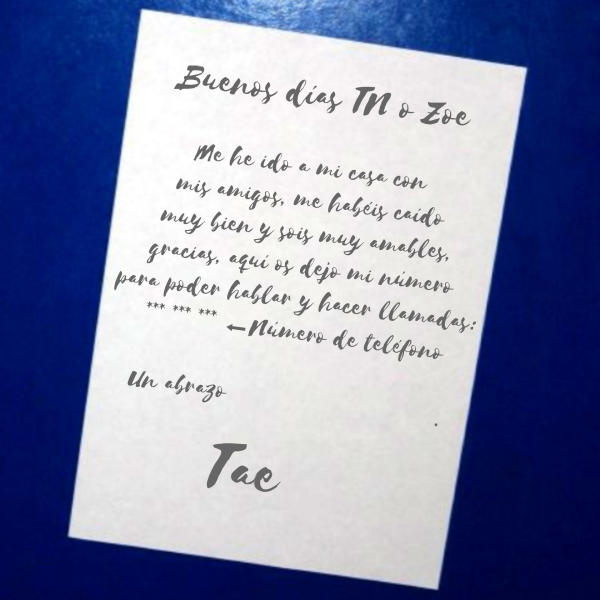 Buenos días TN o Zoe
Me he ido a mi casa con
mis amigos, me habéis caído
muy bien y sois muy amables,
gracias, aquí os dejo mi número
para poder hablar y hacer llamadas:
*** *** *** ←Número de teléfono
Un abrazo
.
Tae